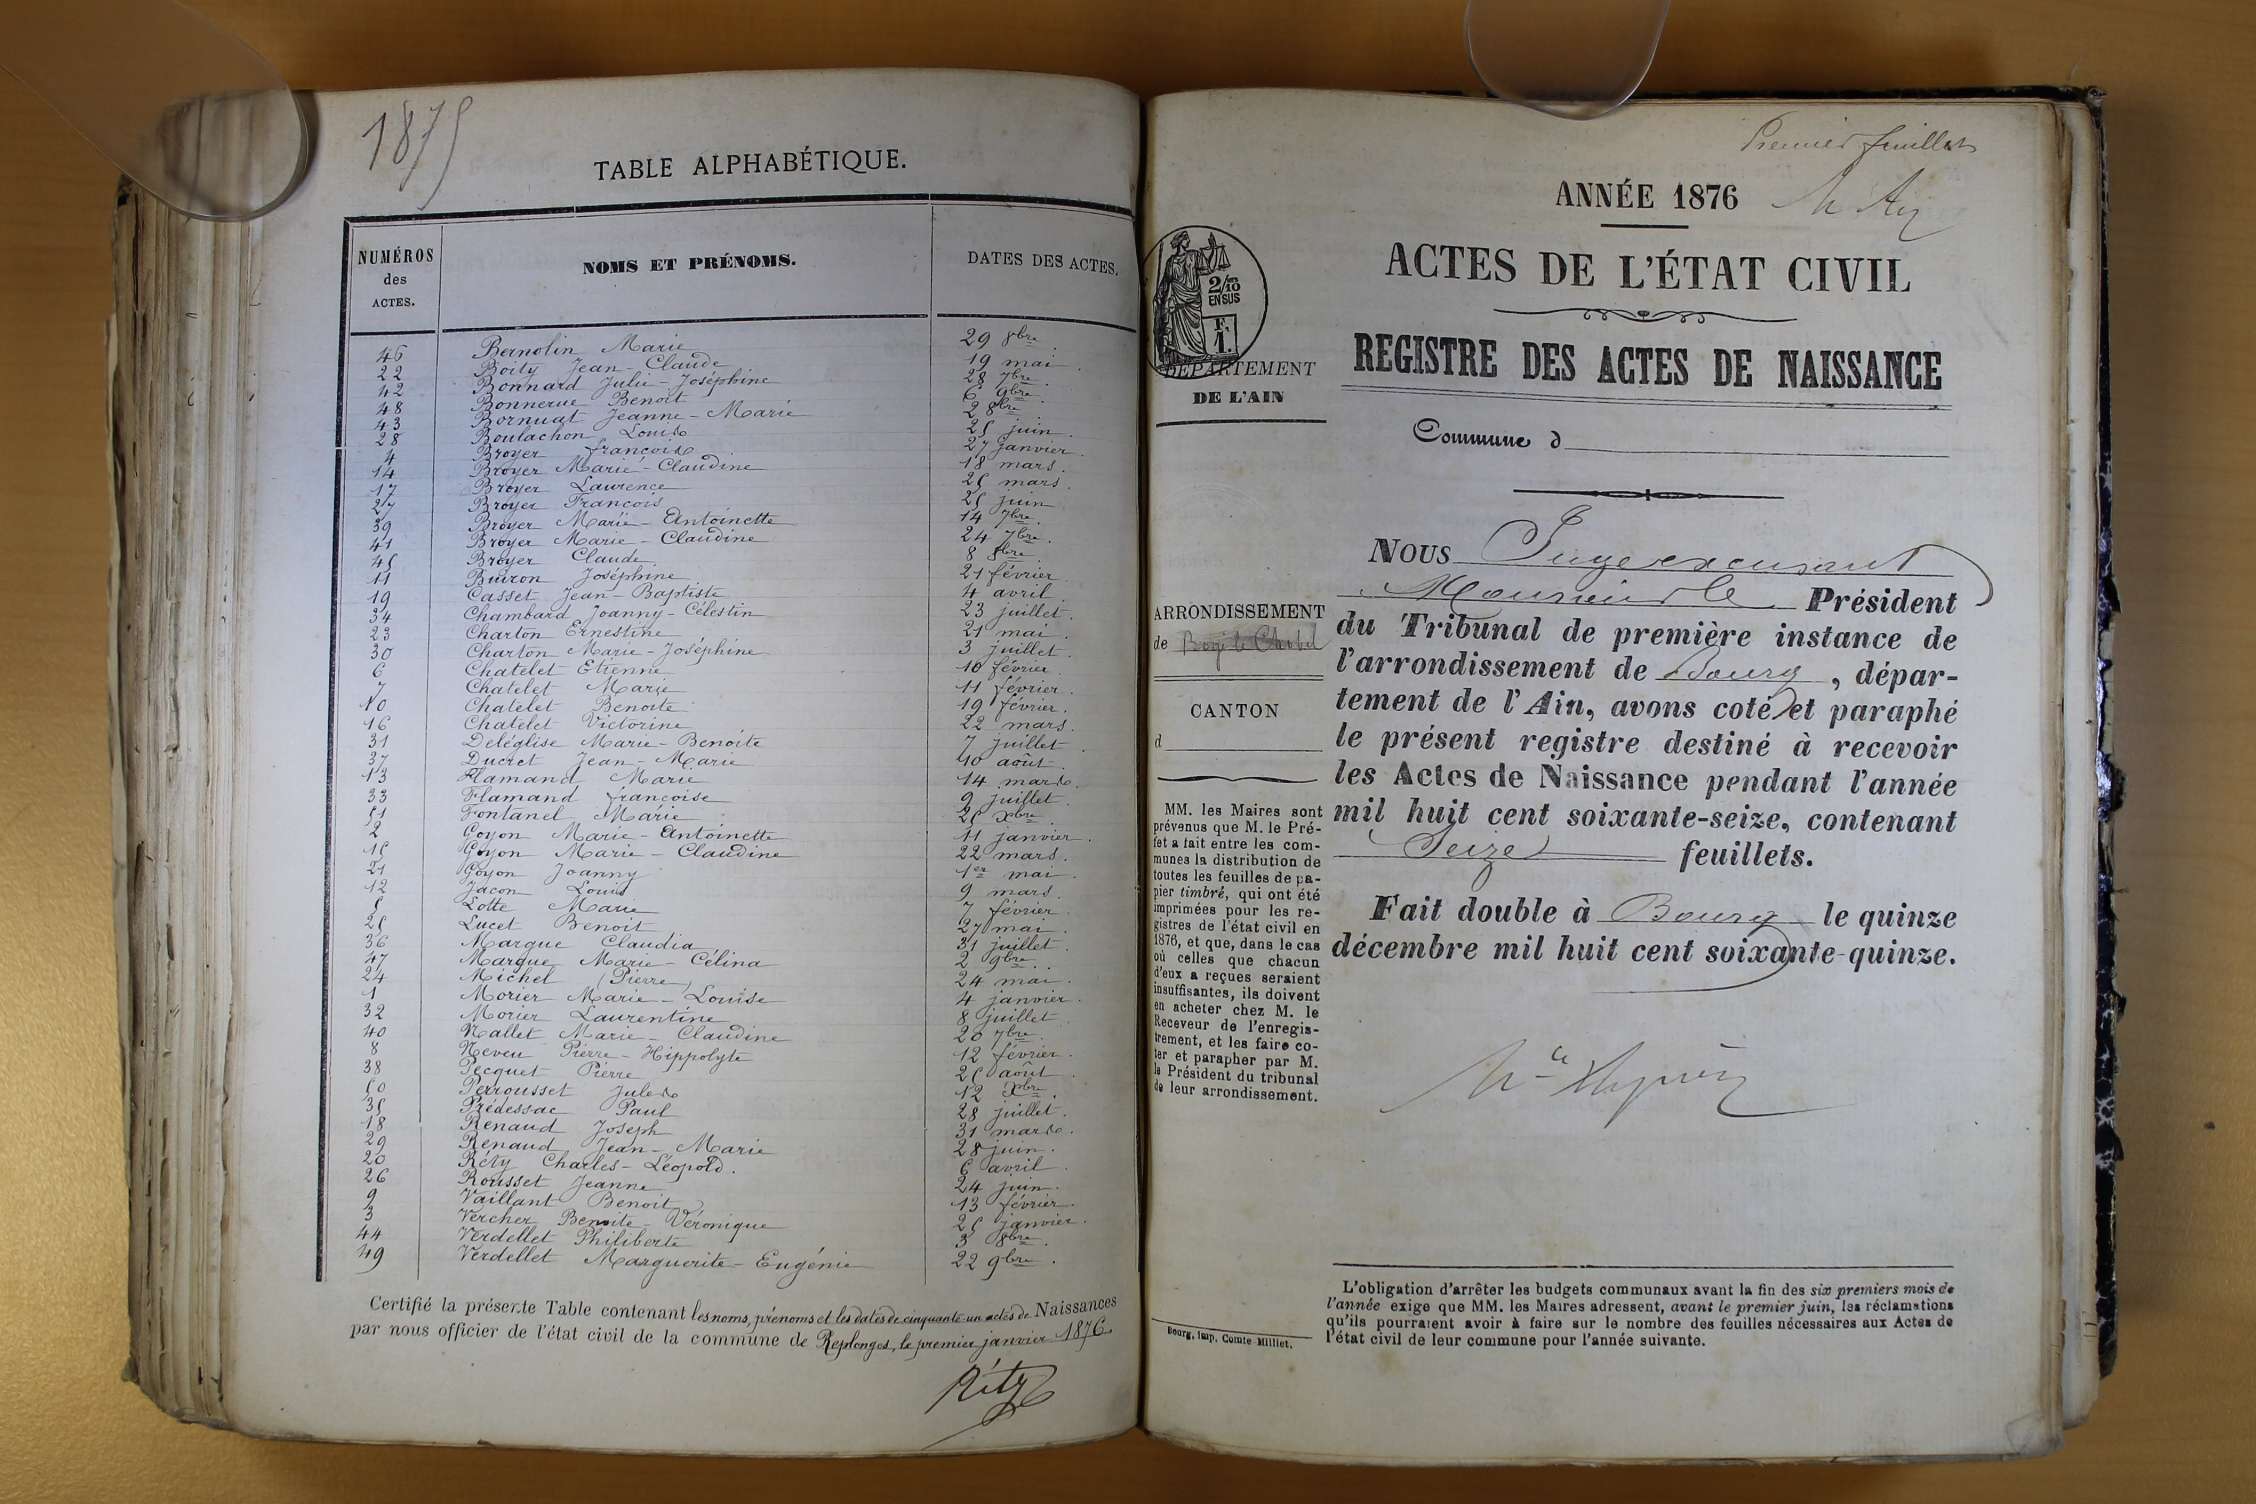 1875
TABLE ALPHABÉTIQUE.
NUMÉROS des ACTES. NOMS ET PRÉNOMS. DATES DES ACTES.
46 Bernolin Marie 29 8bre.
22 Boity Jean-Claude 19 mai.
42 Bonnard Julie-Joséphine 28 7bre.
48 Bonnerue Benoit 6 9bre.
43 Bornuat Jeanne-Marie 2 8bre
28 Boulachon Louis 25 juin.
4 Broyer françois 27 janvier.
14 Broyer Marie-Claudine 18 mars.
17 Broyer Laurence 25 mars.
27 Broyer François 25 juin
39 Broyer Marie-Antoinette 14 7bre.
41 Broyer Marie-Claudine 24 7bre.
45 Broyer Claude 8 8bre
11 Buiron Joséphine 21 février
19 Casset Jean-Baptiste 4 avril
34 Chambard Joanny-Célestin 23 juillet.
23 Charton Ernestine 21 mai.
30 Charton Marie-Joséphine 3 juillet.
6 Chatelet Etienne 10 février
7 Chatelet Marie 11 février.
10 Chatelet Benoite 19 février.
16 Chatelet Victorine 22 mars.
31 Deléglise Marie-Benoite 7 juillet.
37 Ducret Jean-Marie 10 aout.
13 Flamand Marie 14 mars.
33 Flamand françoise 9 juillet.
51 Fontanel Marie 25 Xbre.
2 Goyon Marie-Antoinette 11 janvier.
15 Goyon Marie-Claudine 22 mars.
21 Goyon Joanny 1er mai.
12 Jacon Louis 9 mars.
5 Lotte Marie 7 février.
25 Lucet Benoit 27 mai.
36 Marque Claudia 31 juillet.
47 Marque Marie-Célina 2 9bre.
24 Michel Pierre 24 mai.
1 Morier Marie-Louise 4 janvier.
32 Morier Laurentine 8 juillet
40 Nallet Marie-Claudine 20 7bre.
8 Neveu Pierre-Hippolyte 12 février.
38 Pecquet Pierre 25 aout.
50 Perrousset Jules 12 Xbre.
35 Prédessac Paul 28 juillet.
18 Renaud Joseph 31 mars.
29 Renaud Jean-Marie 28 juin.
20 Réty Charles-Léopold. 6 avril.
26 Rousset Jeanne 24 juin.
9 Vaillant Benoit 13 février.
3 Vercher Benoite-Véronique 25 janvier.
44 Verdellet Philiberte 3 8bre.
49 Verdellet Marguerite-Eugénie 22 9bre.
Certifié la présente Table contenant les noms, prénoms et les dates de cinquante-un actes de Naissances
par nous officier de l'état civil de la commune de Replonges, le premier janvier 1876.
Réty
Premier feuillet
ANNÉE 1876
ACTES DE L'ÉTAT CIVIL
2/10 EN SUS
REGISTRE DES ACTES DE NAISSANCE
DÉPARTEMENT
DE L'AIN
Commune d
ARRONDISSEMENT
de
CANTON
d
MM. les Maires sont
prévenus que M. le Pré-
fet a fait entre les com-
munes la distribution de
toutes les feuilles de pa-
pier timbré, qui ont été
imprimées pour les re-
gistres de l'état civil en
1876, et que, dans le cas
où celles que chacun
d'eux a reçues seraient
insuffisantes, ils doivent
en acheter chez M. le
Receveur de l'enregis-
trement, et les faire co-
ter et parapher par M.
le Président du tribunal
de leur arrondissement.
Bourg, imp. Comte-Milliet.
NOUS Juge excusant
Monsieur le Président
du Tribunal de première instance de
l'arrondissement de Bourg, dépar-
tement de l'Ain, avons coté et paraphé
le présent registre destiné à recevoir
les Actes de Naissance pendant l'année
mil huit cent soixante-seize, contenant
Seize feuillets.
Fait double à Bourg le quinze
décembre mil huit cent soixante-quinze.
L'obligation d'arrêter les budgets communaux avant la fin des six premiers mois de
l'année exige que MM. les Maires adressent, avant le premier juin, les réclamations
qu'ils pourraient avoir à faire sur le nombre des feuilles nécessaires aux Actes de
l'état civil de leur commune pour l'année suivante.